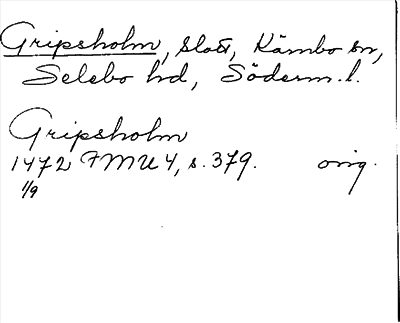 Gripsholm, slott, Kärnbo sn,
Selebo hd, Söderm. l.
Gripsholm
1472 FMU 4, s. 379. orig.
1/9